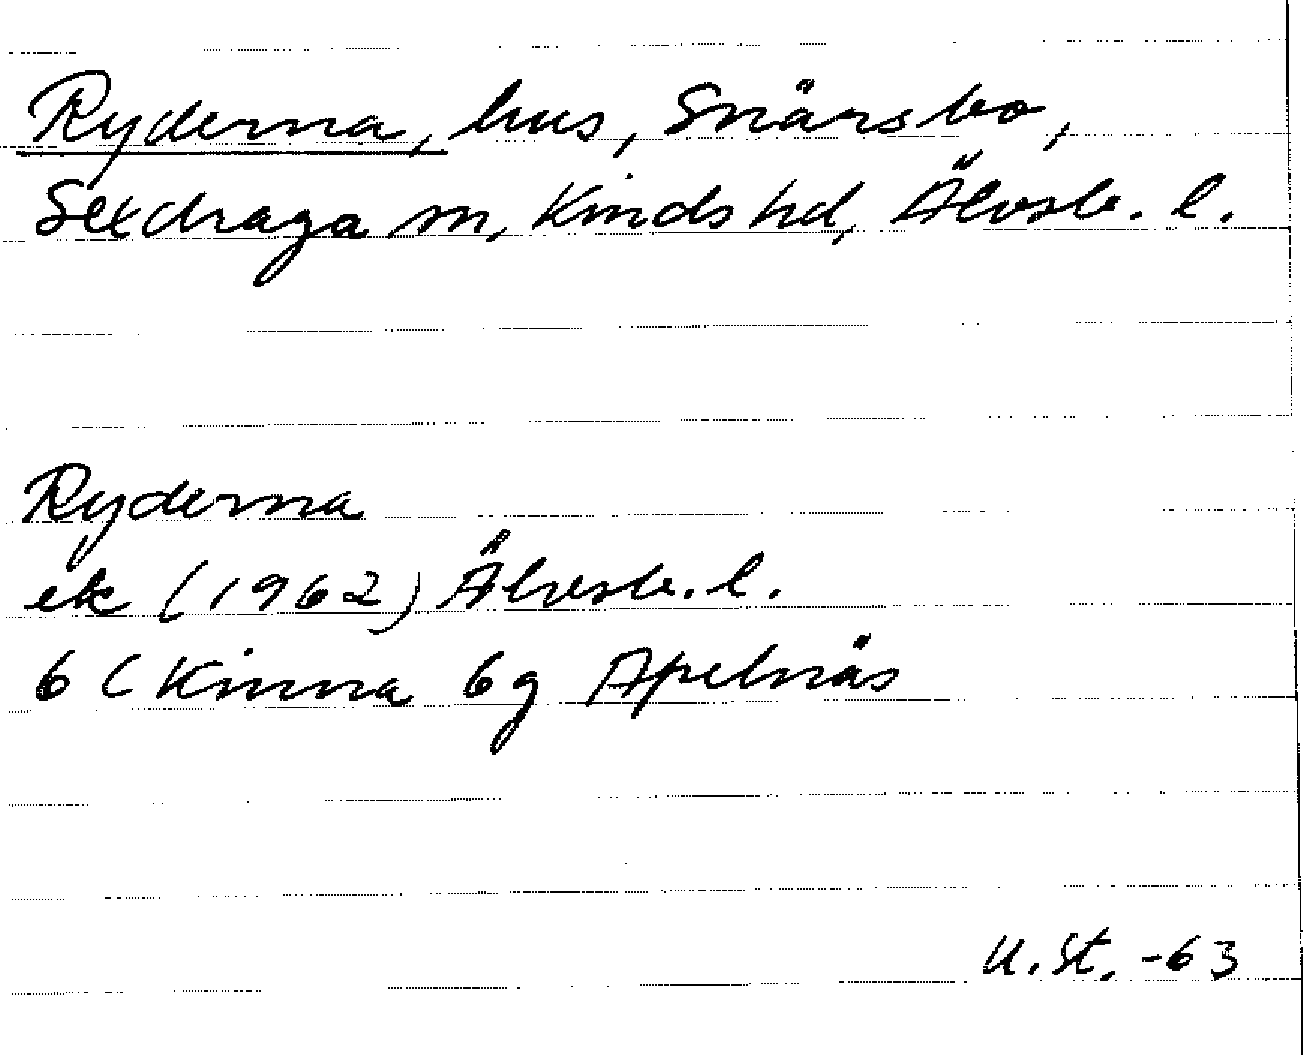 Ryderna, hus, Snärsbo,
Sexdraga sn, Kinds hd, Älvsb. l.
Ryderna
ek (1962) Älvsb. l.
6 C Kinna 6g Apelnäs
U. St. -63